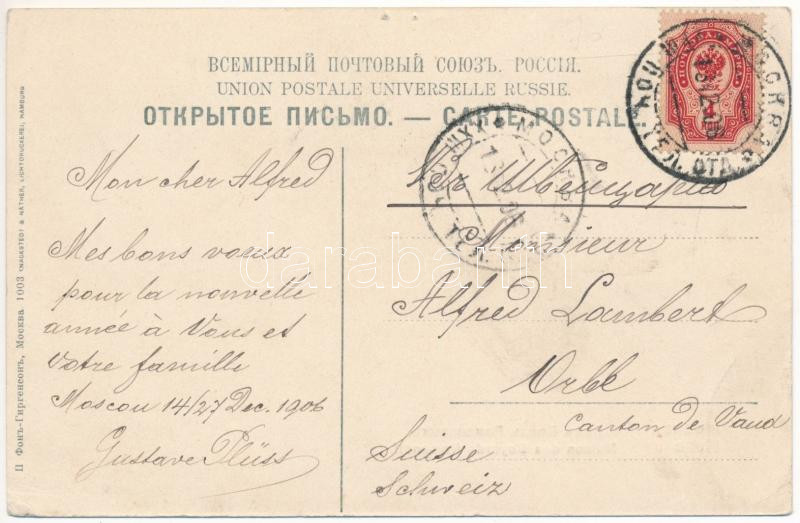 ВСЕМІРНЫЙ ПОЧТОВЫЙ СОЮЗЪ. РОССІЯ.
UNION POSTALE UNIVERSELLE RUSSIE.
ОТКРЫТОЕ ПИСЬМО. — CARTE POSTALE
Mon cher Alfred
Mes bons voeux
pour la nouvelle
année à Vous et
votre famille
Moscou 14/27 Dec. 1906
Gustave Plüss
Въ Швецарію
Monsieur
Alfred Lambert
Orbe
Canton de Vaud
Suisse
Schweiz
П Фонъ-Гиргенсонъ, Москва 1003 (MAGESTEDT & NÄTHER, LICHTDRUCKEREI, HAMBURG
МОСКВА
МОСКВА
darabanth